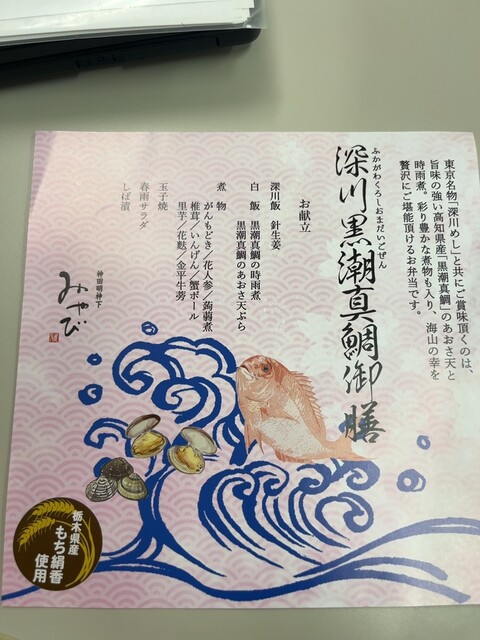 東京名物「深川めし」と共にご賞味頂くのは、
旨味の強い高知県産「黒潮真鯛」のあおさ天と
時雨煮。彩り豊かな煮物も入り、海山の幸を
贅沢にご堪能頂けるお弁当です。
ふかがわくろしおまだいごぜん
深川黒潮真鯛御膳
お献立
深川飯 針生姜
白 飯 黒潮真鯛の時雨煮
黒潮真鯛のあおさ天ぷら
煮 物 がんもどき／花人参／蒟蒻煮
椎茸／いんげん／蟹ボール
里芋／花麩／金平牛蒡
玉子焼
春雨サラダ
しば漬
神田明神下
みやび
栃木県産
もち絹香
使用